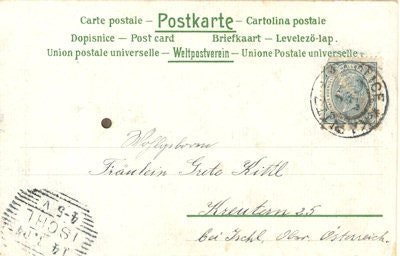 Carte postale – Postkarte – Cartolina postale
Dopisnice – Post card Briefkaart – Levelező-lap.
Union postale universelle – Weltpostverein – Unione Postale universelle
Wollgeboren
Fräulein Grete Kihl
Kreutern 25
bei Ischl, Ober Österreich.
ISCHL
4-5-V